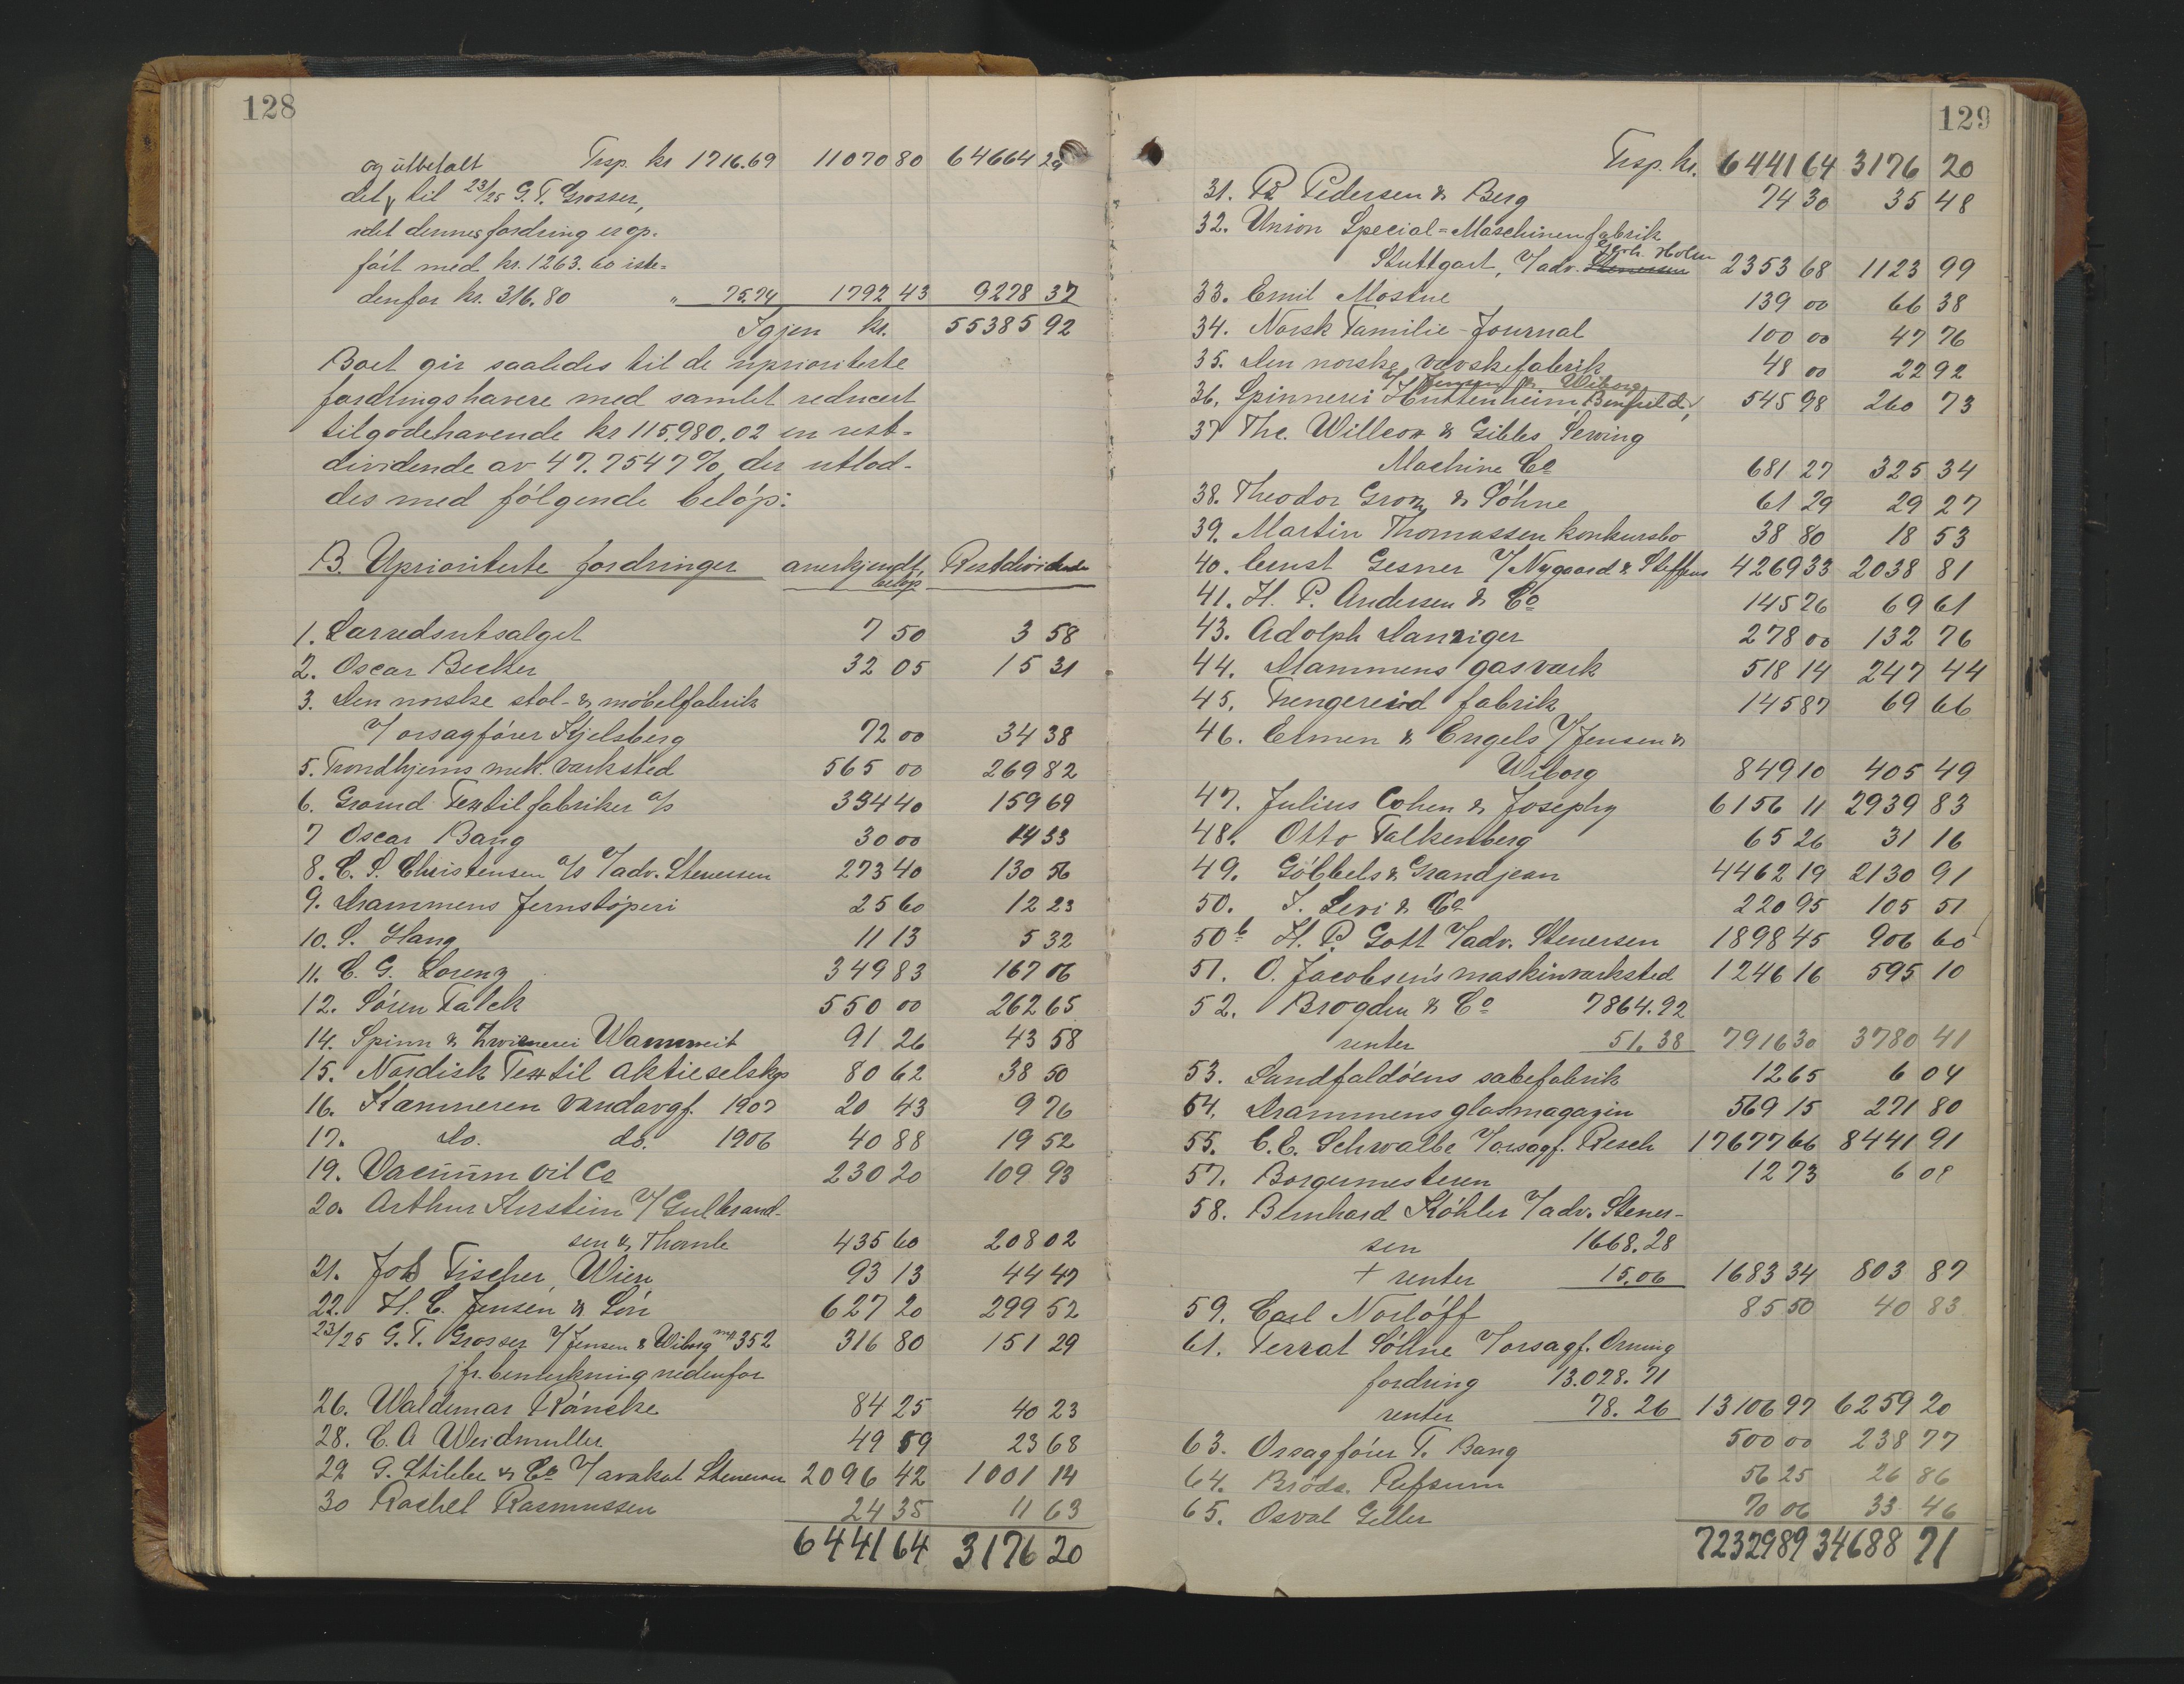 128
Trsp. kr 1716.69 11070 80 64664 29
og utbetalt
det til 23/25 G. T. Grosser,
idet dennes fordring er op-
ført med kr. 1263.60 iste-
denfor kr. 316.80 " 75.74 1792 43 9278 37
Igjen kr. 55385 92
Boet gir saaledes til de uprioriterte
fordringshavere med samlet reducert
tilgodehavende kr 115.980.02 en rest-
dividende av 47.7547 %, der utlod-
des med følgende beløp:
B. Uprioriterte fordringer anerkjendt beløp Restdividende
1. Lærredsutsalget 7 50 3 58
2. Oscar Becker 32 05 15 31
3. Den norske stol- & møbelfabrik
v/ orsagfører Kjelsberg 72 00 34 38
5. Trondhjems mek. værksted 565 00 269 82
6. Grorud Textilfabriker a/s 334 40 159 69
7 Oscar Bang 30 00 14 33
8. C. S. Christensen a/s v/adv. Stenersen 273 40 130 56
9. Drammens Jernstøperi 25 60 12 23
10. S. Haug 11 13 5 32
11. C. G. Lorenz 349 83 167 06
12. Søren Falck 550 00 262 65
14. Spinn & Zwirnerei Wannweit 91 26 43 58
15. Nordisk Textil aktieselskap 80 62 38 50
16. Kæmneren vandavgf. 1907 20 43 9 76
17. Do. do. 1906 40 88 19 52
19. Vacuum Oil Co 230 20 109 93
20. Arthur Kirstein v/ Gulbrand-
sen & Thomle 435 60 208 02
21. Joh Fischer, Wien 93 13 44 47
22. H. C. Jensen & Søn 627 20 299 52
23/25 G. T. Grosser v/ Jensen & Wiborg mrk 352 316 80 151 29
jfr. bemerkning nedenfor
26. Waldemar Röncke 84 25 40 23
28. C. A Weidmuller 49 59 23 68
29 G. Stibbe & Co v/ avakat Stenersen 2096 42 1001 14
30 Rachel Rasmussen 24 35 11 63
6441 64 3176 20
129
Trsp. kr. 6441 64 3176 20
31. P. Pedersen & Berg 74 30 35 48
32. Union Special-Maschinenfabrik
Stuttgart, v/adv. Stenersen Gerh. Holm 2353 68 1123 99
33. Emil Mostue 139 00 66 38
34. Norsk Familie-Journal 100 00 47 76
35. Den norske vævskefabrik 48 00 22 92
v/ Jensen & Wiborg
36. Spinnerei Huttenheim, Benfeld, 545 98 260 73
37 The. Willcox & Gibbs Sewing
Machine Co 681 27 325 34
38. Theodor Groz & Söhne 61 29 29 27
39. Martin Thomassen konkursbo 38 80 18 53
40. Ernst Gesner v/ Nygaard & Steffens 4269 33 2038 81
41. H. P. Andersen & Co 145 26 69 61
43. Adolph Danziger 278 00 132 76
44. Drammens gasværk 518 14 247 44
45. Trengereid fabrik 145 87 69 66
46. Ermen & Engels v/ Jensen &
Wiborg 849 10 405 49
47. Julius Cohen & Josephy 6156 11 2939 83
48. Otto Falkenberg 65 26 31 16
49. Göbbels & Grandjean 4462 19 2130 91
50. J. Levi & Co 220 95 105 51
50 b H. P. Gott v/adv. Stenersen 1898 45 906 60
51. O. Jacobsen's maskinværksted 1246 16 595 10
52. Brogden & Co 7864.92
renter 51.38 7916 30 3780 41
53. Sundfaldøens sæbefabrik 12 65 6 04
54. Drammens glasmagazin 569 15 271 80
55. C. E. Schwalbe v/orsagf. Resch 17677 66 8441 91
57. Borgermesteren 12 73 6 08
58. Bernhard Köhler v/adv. Stener-
sen 1668.28
+ renter 15.06 1683 34 803 87
59. Carl Norlöff 85 50 40 83
61. Terrot Söhne v/orsagf. Orning
fordring 13.028.71
renter 78.26 13106 97 6259 20
63. Orsagfører T. Bang 500 00 238 77
64. Brødr. Refsum 56 25 26 86
65. Osval Geller 70 06 33 46
72329 89 34688 71